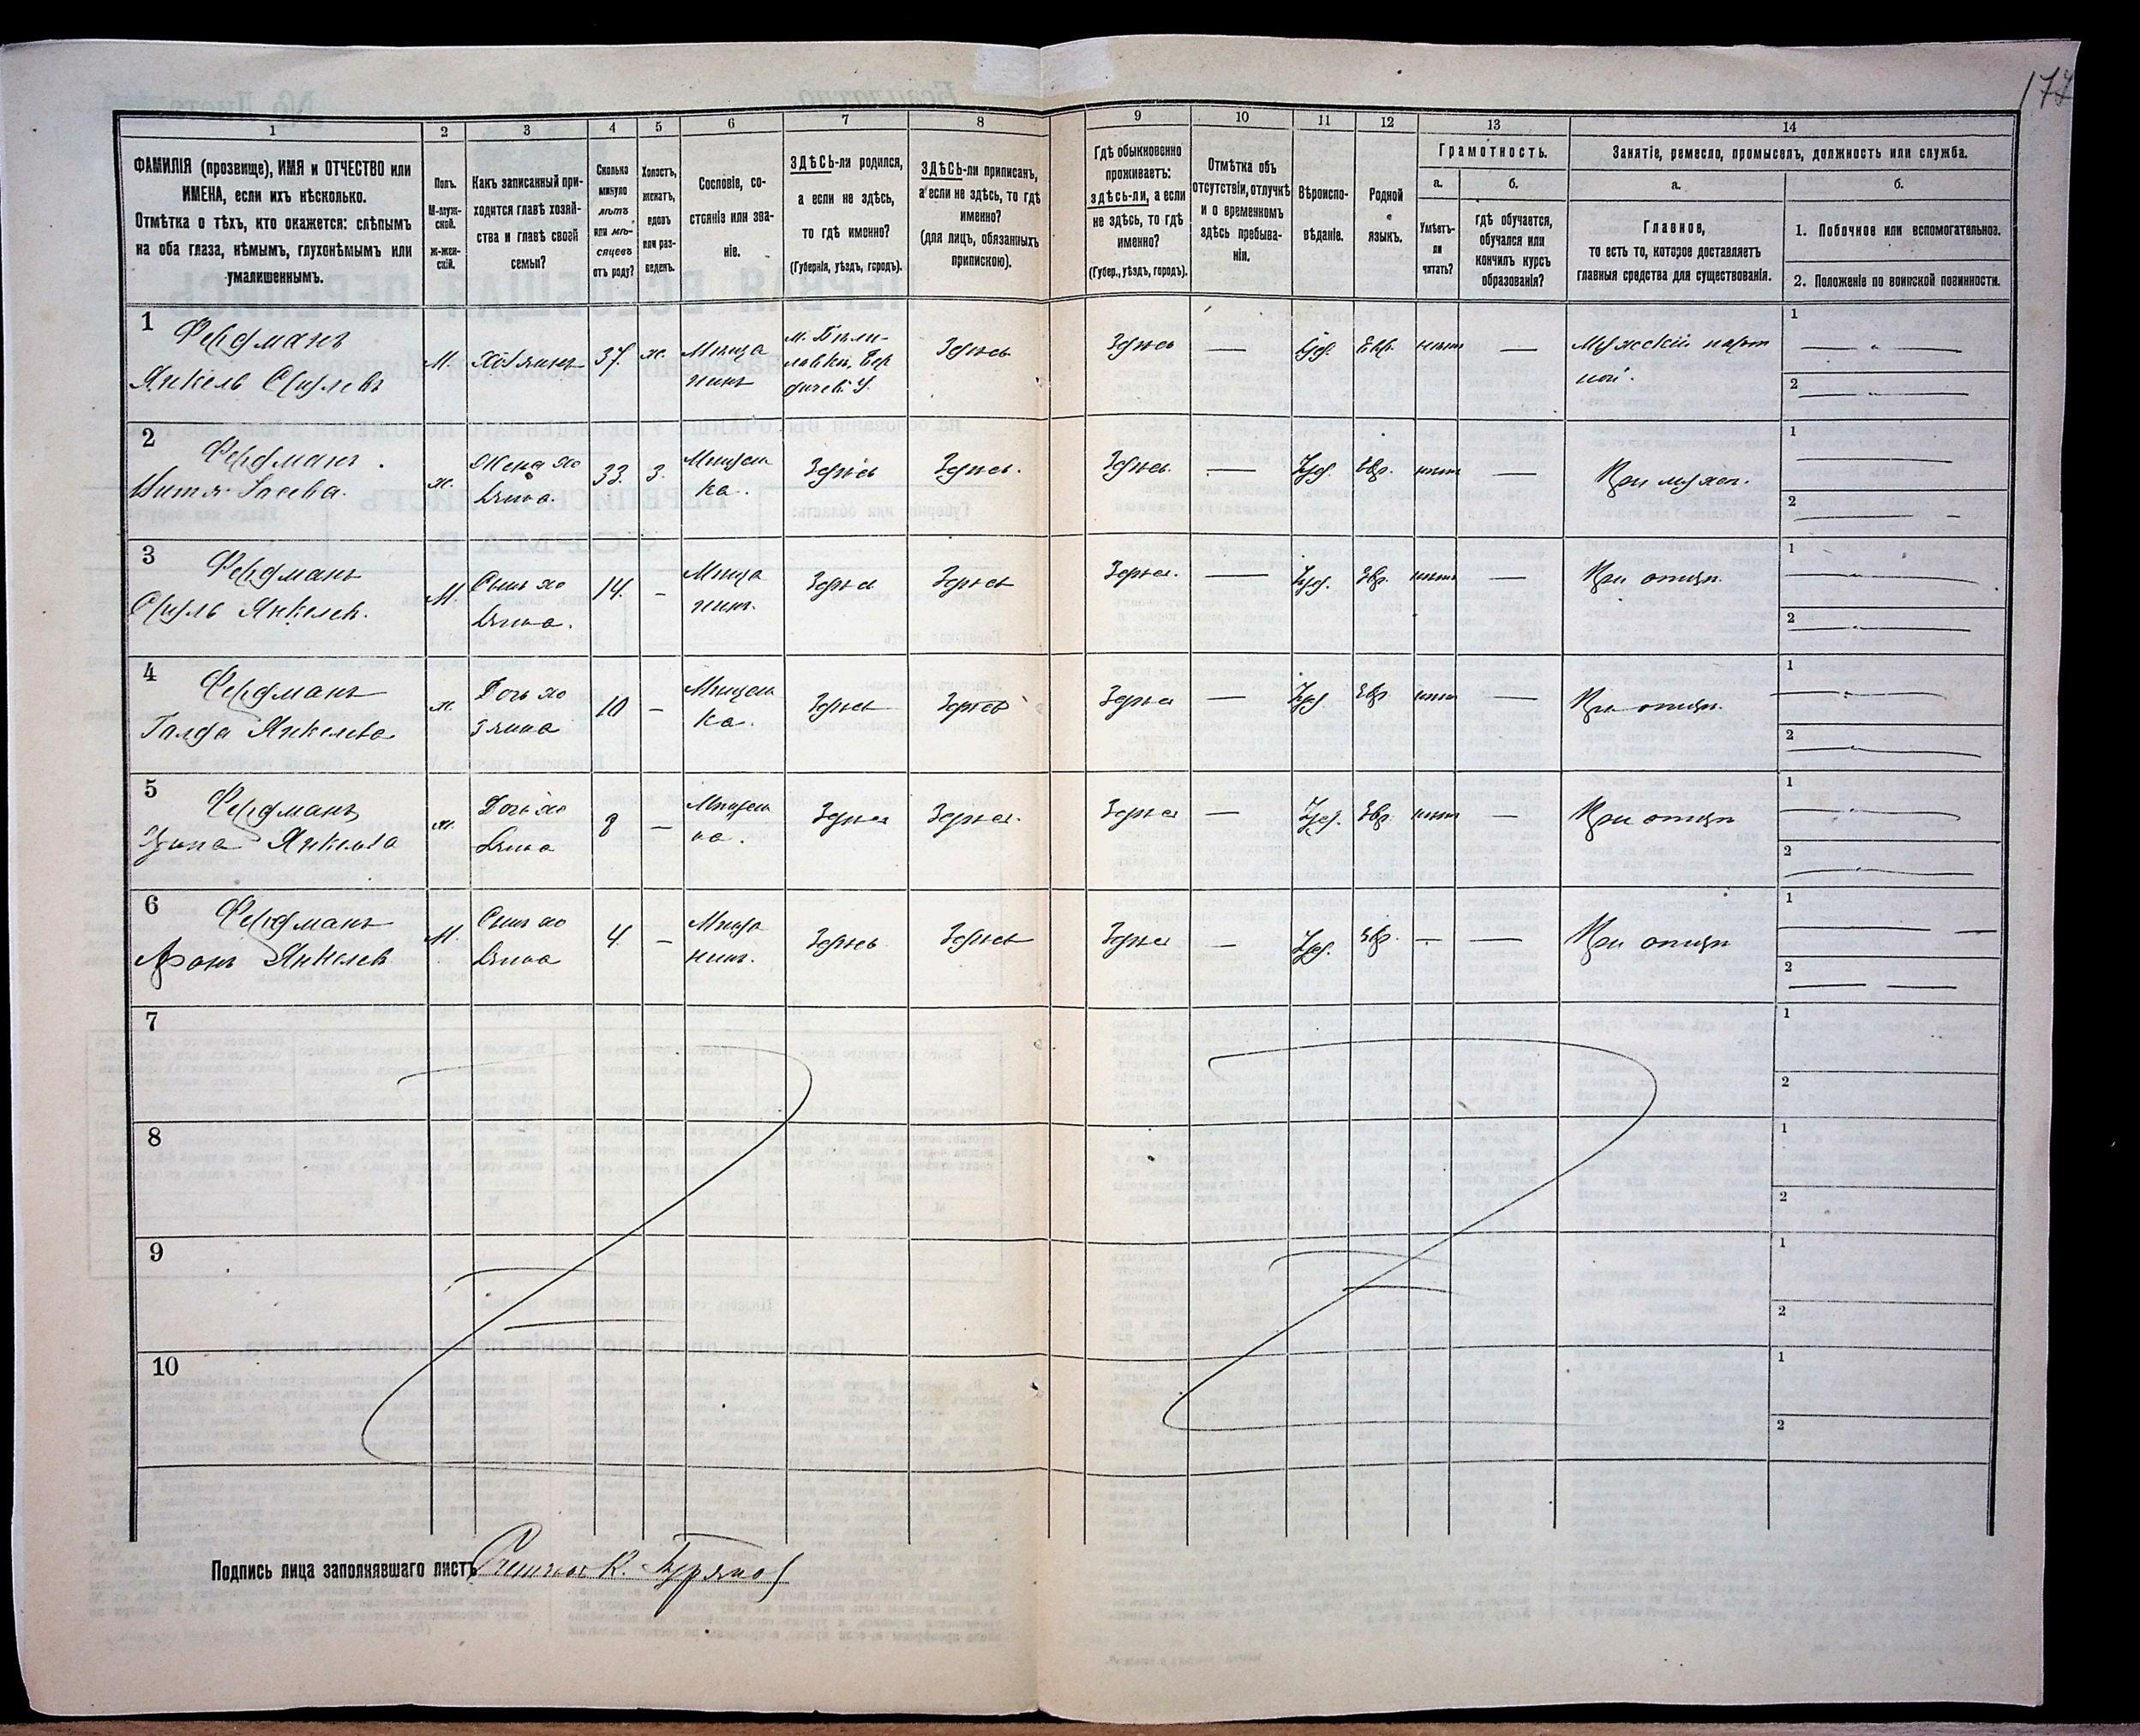 177
1
2
3
4
5
6
7
8
9
10
11
12
13
14
ФАМИЛІЯ (прозвище), ИМЯ и ОТЧЕСТВО или
ИМЕНА, если ихъ нѣсколько.
Отмѣтка о тѣхъ, кто окажется: слѣпымъ
на оба глаза, нѣмымъ, глухонѣмымъ или
умалишеннымъ.
Полъ.
М-муж-
ской.
ж-жен-
скій.
Какъ записанный при-
ходится главѣ хозяй-
ства и главѣ своей
семьи?
Сколько
минуло
лѣтъ
или мѣ-
сяцевъ
отъ роду?
Холостъ,
женатъ,
вдовъ
или раз-
веденъ.
Сословіе, со-
стояніе или зва-
ніе.
ЗДѢСЬ-ли родился,
а если не здѣсь,
то гдѣ именно?
(Губернія, уѣздъ, городъ).
ЗДѢСЬ-ли приписанъ,
а если не здѣсь, то гдѣ
именно?
(для лицъ, обязанныхъ
припискою).
Гдѣ обыкновенно
проживаетъ:
здѣсь-ли, а если
не здѣсь, то гдѣ
именно?
(Губер., уѣздъ, городъ).
Отмѣтка объ
отсутствіи, отлучкѣ
и о временномъ
здѣсь пребыва-
ніи.
Вѣроиспо-
вѣданіе.
Родной
языкъ.
Грамотность.
а.
б.
Умѣетъ-
ли
читать?
гдѣ обучается,
обучался или
кончилъ курсъ
образованія?
Занятіе, ремесло, промыселъ, должность или служба.
а.
б.
Главное,
то есть то, которое доставляетъ
главныя средства для существованія.
1. Побочное или вспомогательное.
2. Положеніе по воинской повинности.
1
Фердманъ
Янкель Срулевъ
М. Хозяинъ 37. ж. Мѣща
нинъ
м. Бѣли-
ловки, Бер
дичев. У.
Здѣсь
Здѣсь — Іуд. Евр. нѣтъ —
Мужской порт
ной.
1
2
2
Фердманъ.
Ікова.
ж. Жена хо
зяина. 33. З. Мѣщан
ка. Здѣсь Здѣсь.
Здѣсь — Іуд. Евр. нѣтъ — При мужѣ.
1
2
3
Фердманъ
Сруль Янкелев.
М Сынъ хо
зяина. 14. - Мѣща
нинъ. Здѣсь Здѣсь
Здѣсь. — Іуд. Евр. нѣтъ — При отцѣ.
1
2
4
Фердманъ
Голда Янкелева
ж. Дочь хо
зяина 10 — Мѣщан
ка. Здѣсь Здѣсь
Здѣсь — Іуд Евр нѣтъ — При отцѣ.
1
2
5
Фердманъ
Янкелева
ж. Дочь хо
зяина 8 — Мѣщан
ка. Здѣсь Здѣсь.
Здѣсь — Іуд. Евр. нѣтъ — При отцѣ
1
2
6
Фердманъ
Янкелев
М. Сынъ хо
зяина 4 — Мѣща
нинъ. Здѣсь Здѣсь
Здѣсь — Іуд. Евр. — — При отцѣ
1
2
7
1
2
8
1
2
9
1
2
10
1
2
Подпись лица заполнявшаго листъ Счетчикъ К.